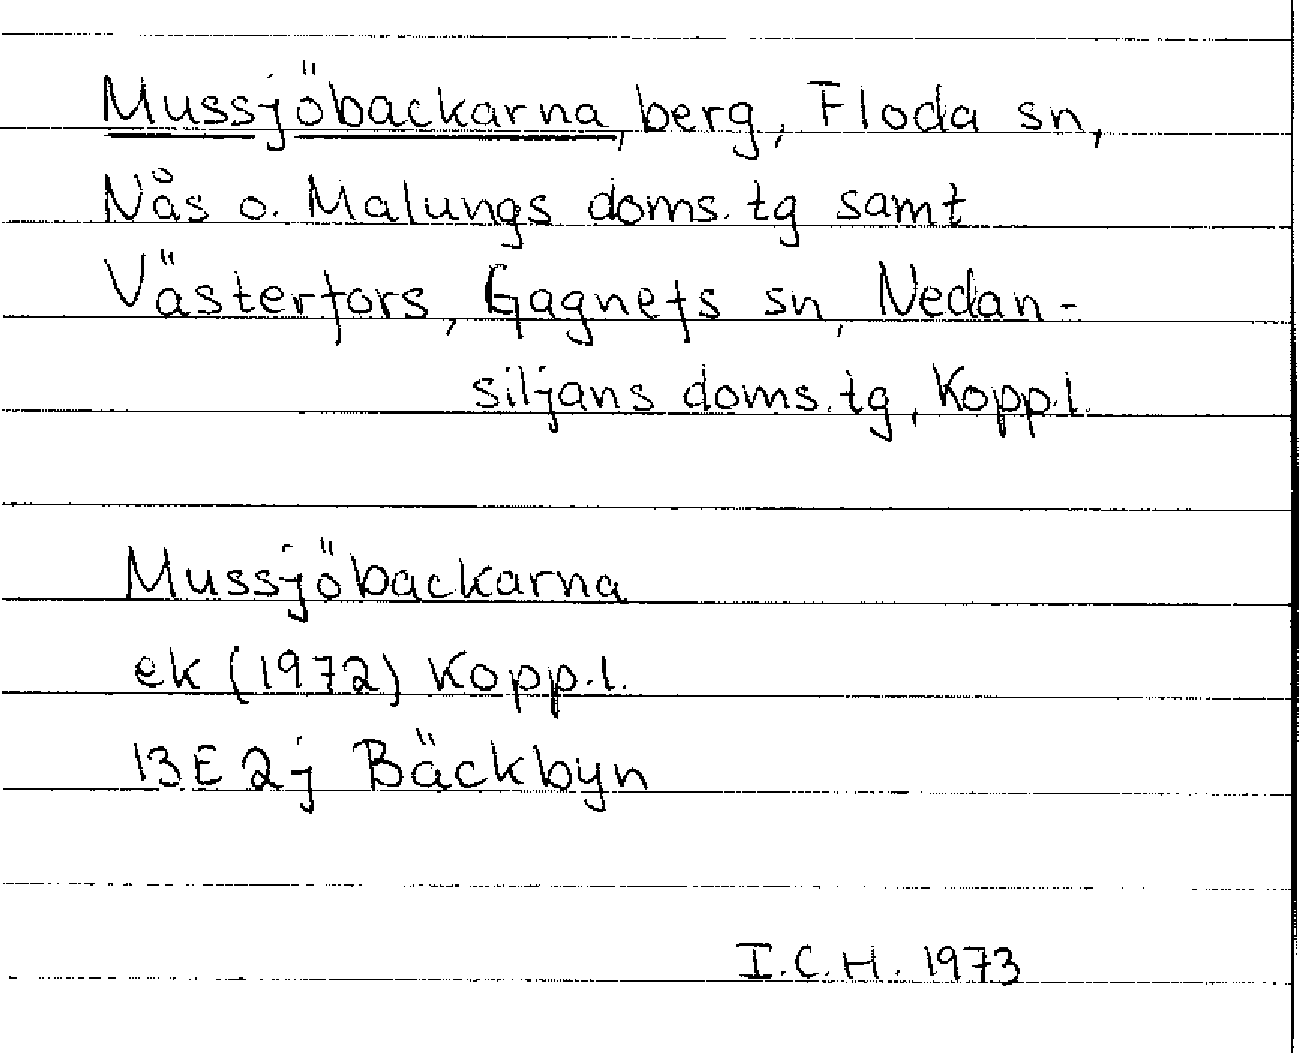 Mussjöbackarna, berg, Floda sn,
Nås o. Malungs doms.tg samt
Västerfors, Gagnefs sn, Nedan-
siljans doms.tg, Kopp.l.
Mussjöbackarna
ek (1972) Kopp.l.
13E 2j Bäckbyn
I.C.H. 1973